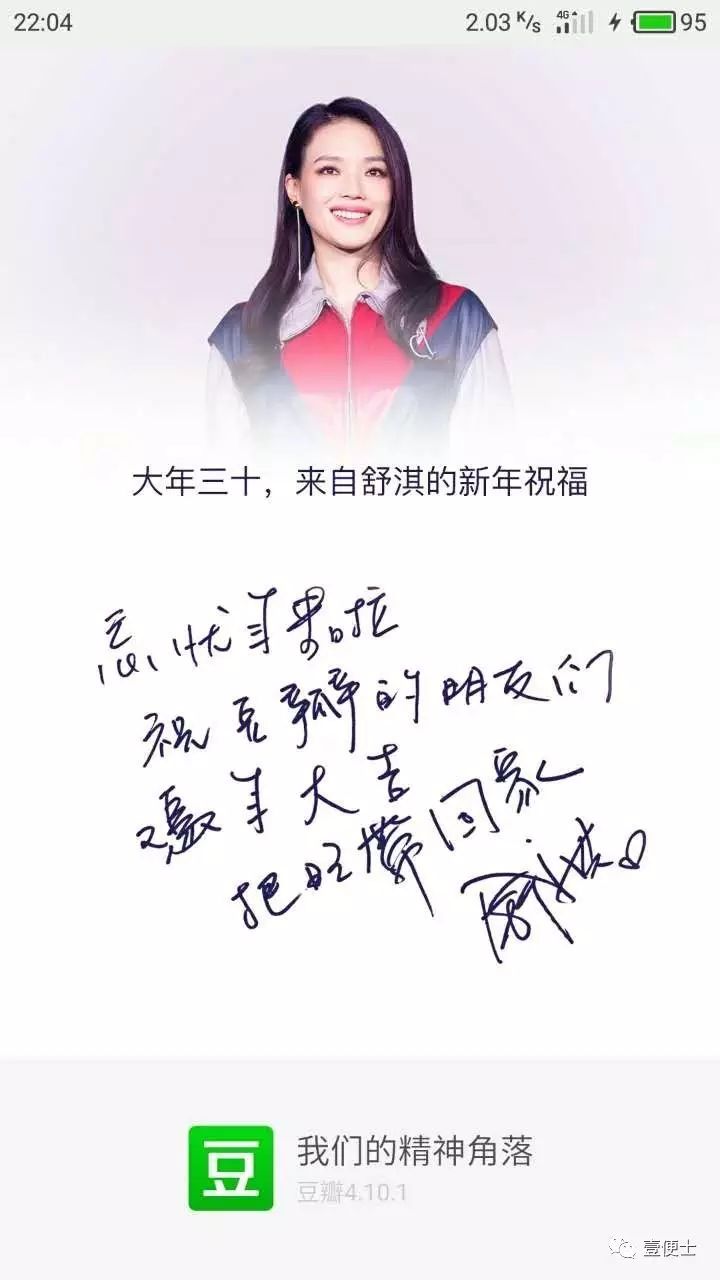 22:04
2.03 K/s 4G 95
大年三十，来自舒淇的新年祝福
忘忧年集啦
祝豆瓣的朋友们
鸡年大吉
把旺带回家
舒淇
豆
我们的精神角落
豆瓣4.10.1
壹便士